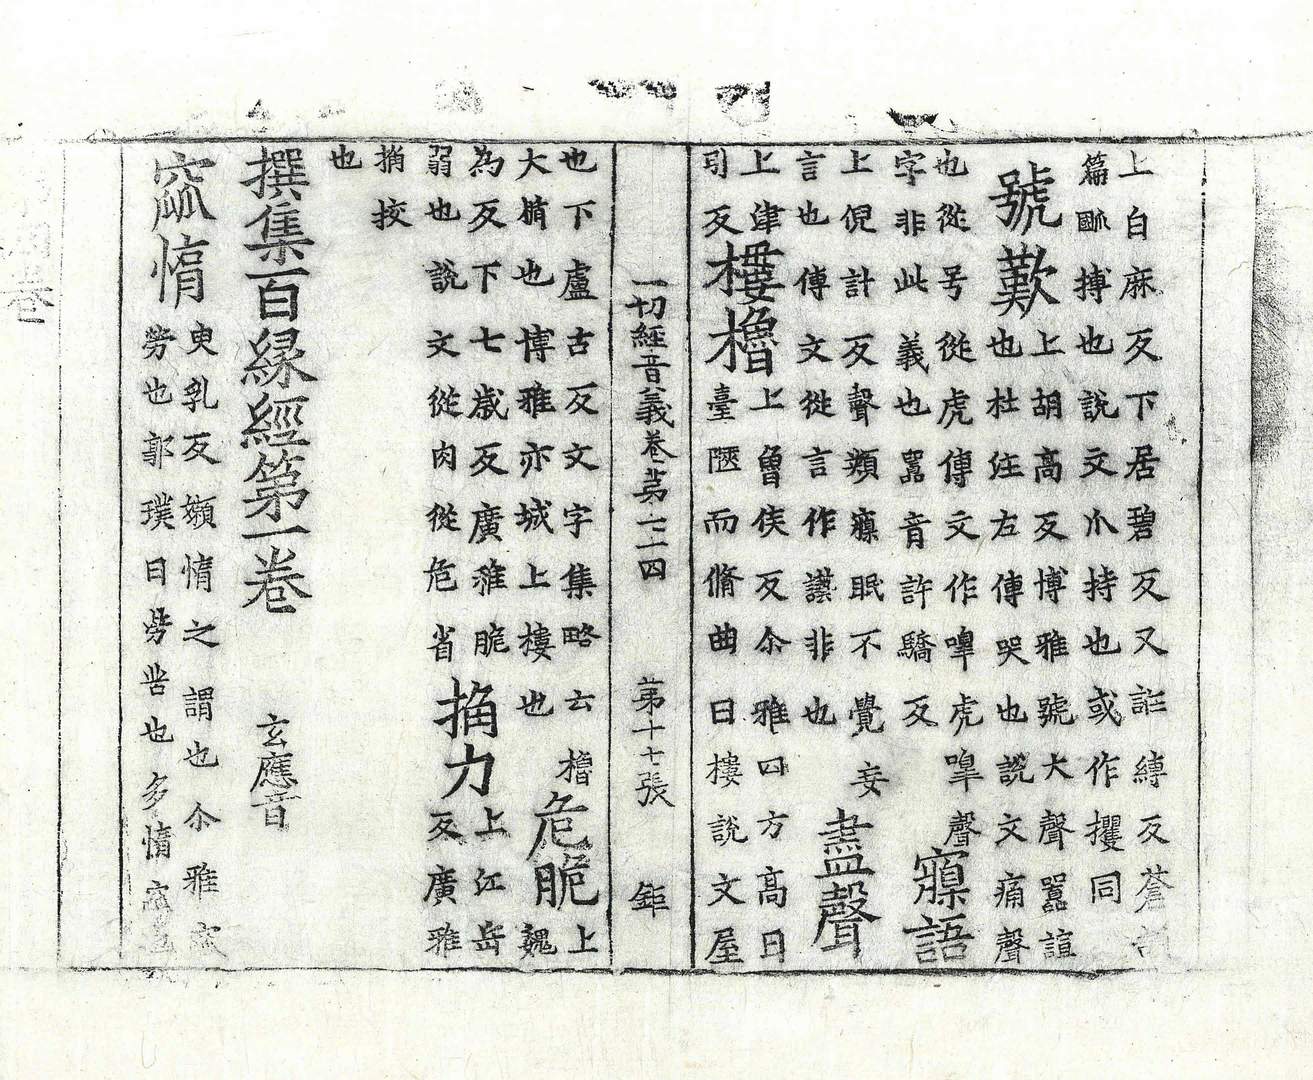 上白麻反下居碧反又詎縛反蒼頡
篇云搏也說文爪持也或作攫同
號歎
上胡高反博雅號大聲嚻諠
也杜注左傳哭也說文痛聲
也從号從虎傳文作嘷虎嘷聲
字非此義也嚻音許驕反
寱語
上倪計反聲類寱眠不覺妄
言也傳文從言作讛非也
盡聲
上津
引反
樓櫓
上魯侯反尒雅四方高曰
臺陿而脩曲曰樓說文屋
一切經音義卷苐七十四　苐十七張　鉅
也下盧古反文字集略云櫓
大楯也博雅亦城上樓也
危脆
上
魏
為反下七歲反廣雅脆
弱也說文從肉從危省
捔力
上江岳
反廣雅
捔挍
也
撰集百緣經第一卷　玄應音
窳惰
臾乳反嬾惰之謂也尒雅窳
勞也郭璞曰勞苦也多惰窳也